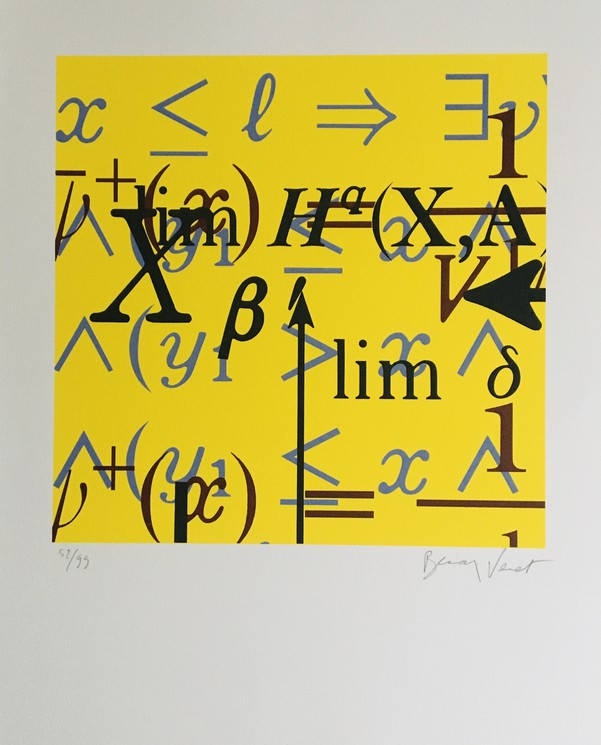 x ≤ ℓ ⇒ ∃ν
1
ν⁺(x) =
lim H^q(X, A
∧(y₁ ≤ x ∧
X β′
V
1
∧(y₁ > x ∧
lim δ
1
∧(y₁ ≤ x ∧
ν⁺(x) =
p
1
52/99 Bernar Venet